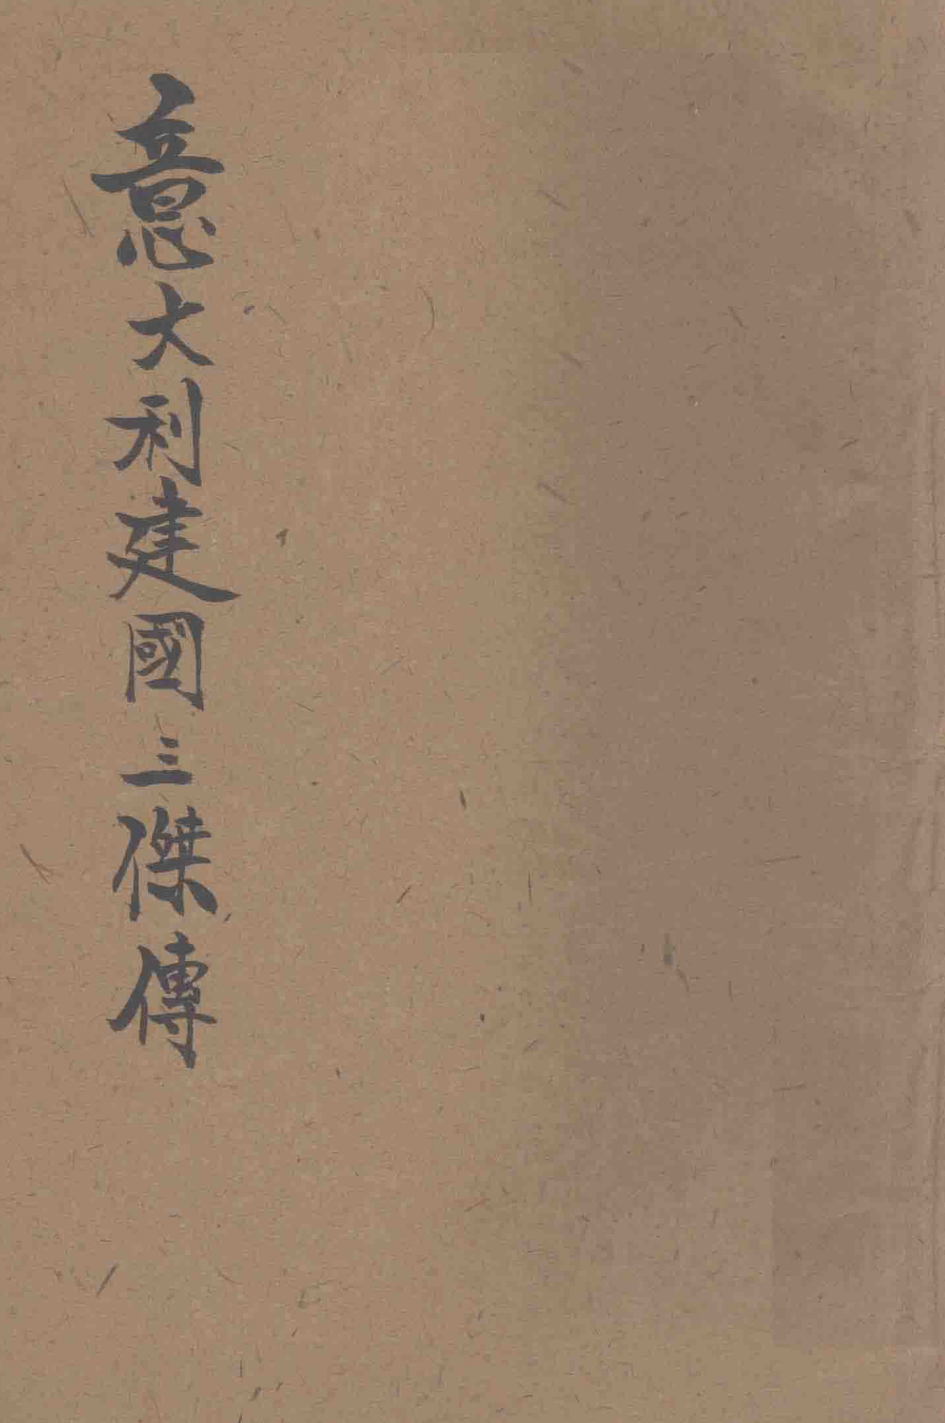 意大利建國三傑傳